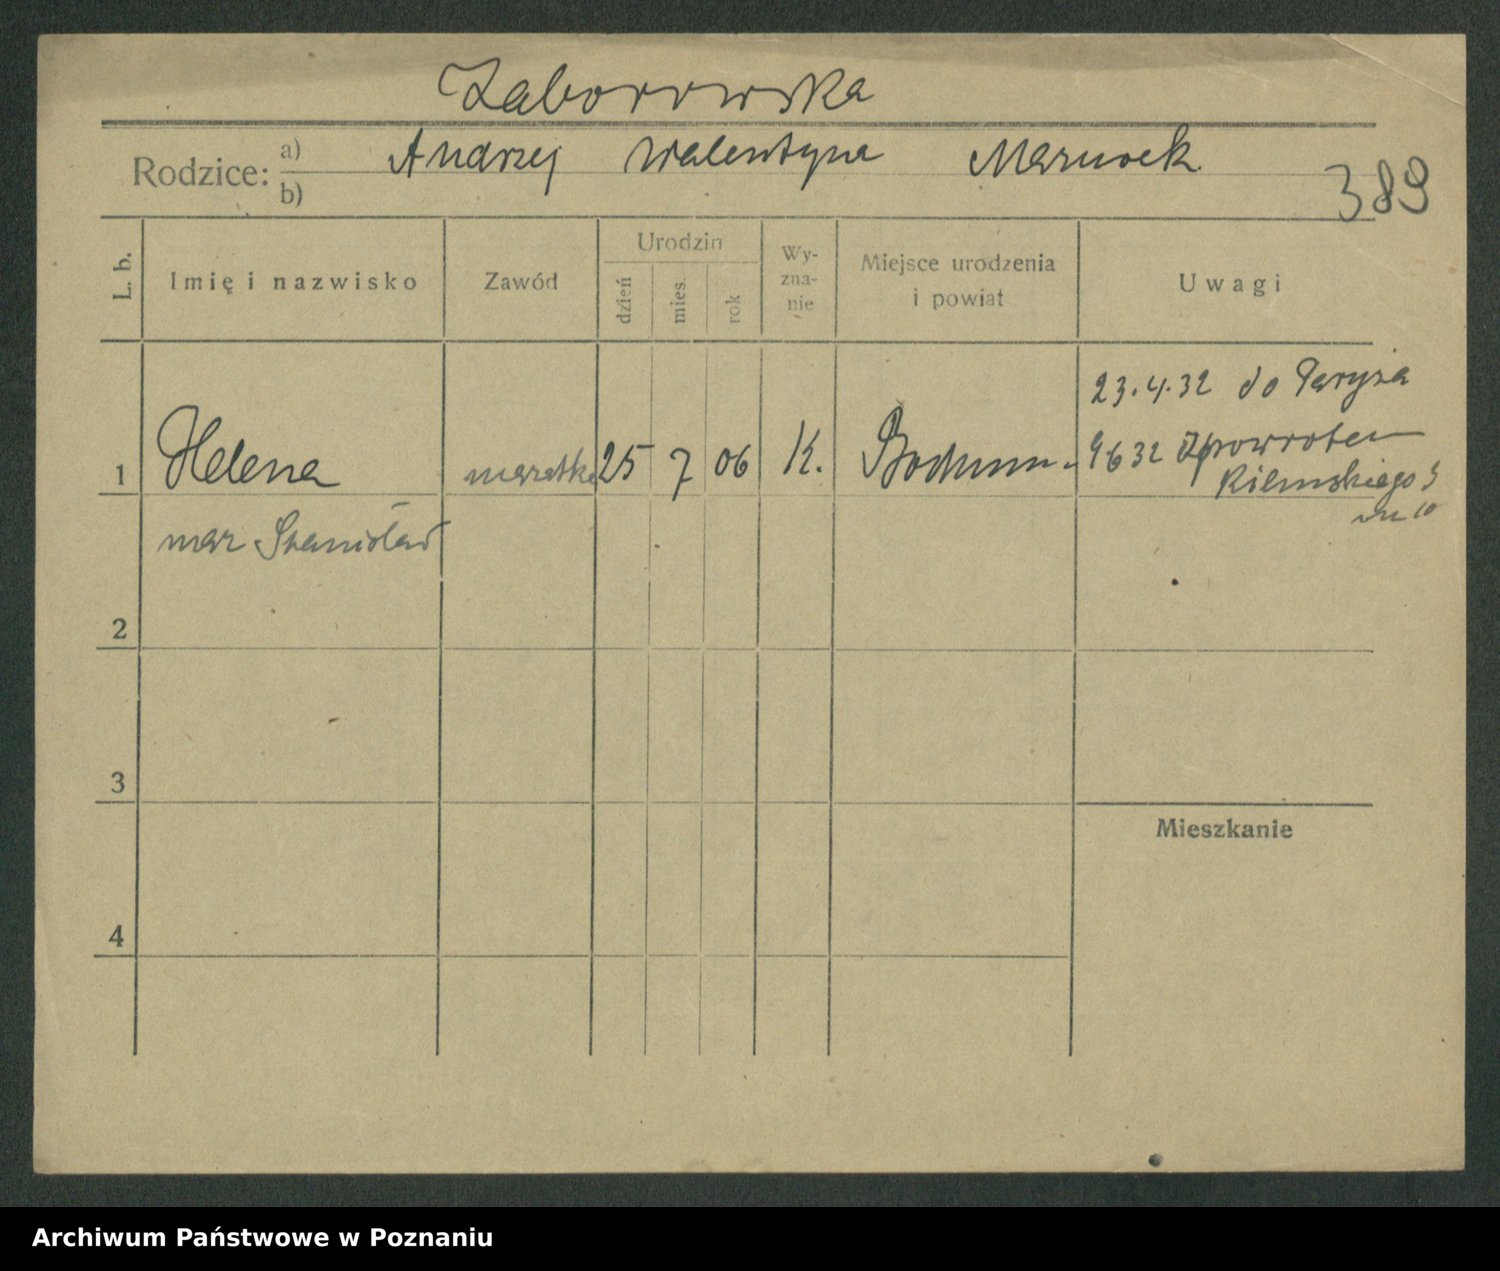 Zaborowska
Rodzice: a) Andrzej Walentyna Mazurek
b)
389
L. b.
Imię i nazwisko
Zawód
Urodzin
dzień
mies.
rok
Wy-
zna-
nie
Miejsce urodzenia
i powiat
Uwagi
23.4.32 do Paryża
1 Helena mężatka 25 7 06 K. Bochum 9 6 32 zpowrotem
Kilińskiego 5
m 10
mąż Stanisław
2
3
Mieszkanie
4
Archiwum Państwowe w Poznaniu